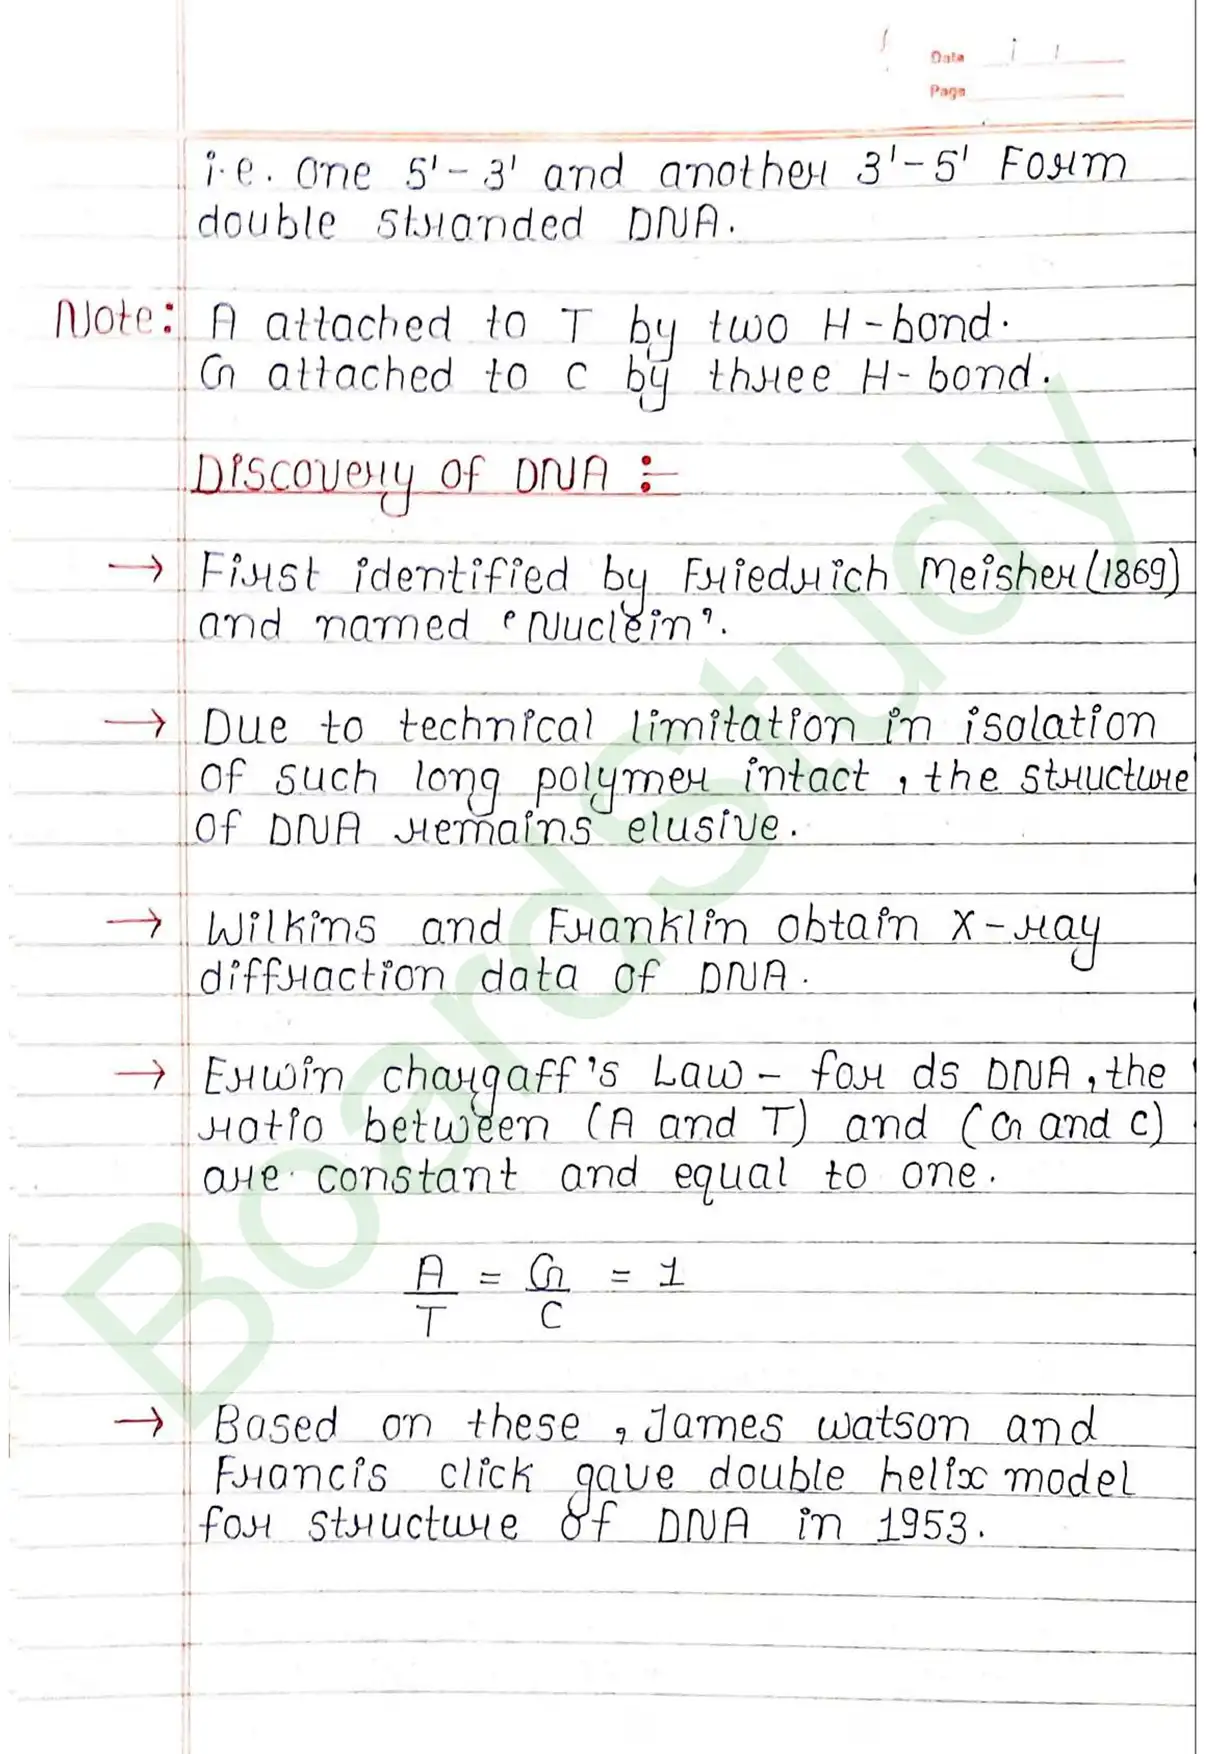 Date
Page
i.e. one 5'-3' and another 3'-5' Form
double stranded DNA.
Note: A attached to T by two H-bond.
G attached to C by three H-bond.
Discovery of DNA :-
→ First identified by Friedrich Meisher (1869)
and named 'Nuclein'.
→ Due to technical limitation in isolation
of such long polymer intact, the structure
of DNA remains elusive.
→ Wilkins and Franklin obtain X-ray
diffraction data of DNA.
→ Erwin chargaff's Law - for ds DNA, the
ratio between (A and T) and (G and C)
are constant and equal to one.
A/T = G/C = 1
→ Based on these, James watson and
Francis click gave double helix model
for structure of DNA in 1953.
BoardStudy